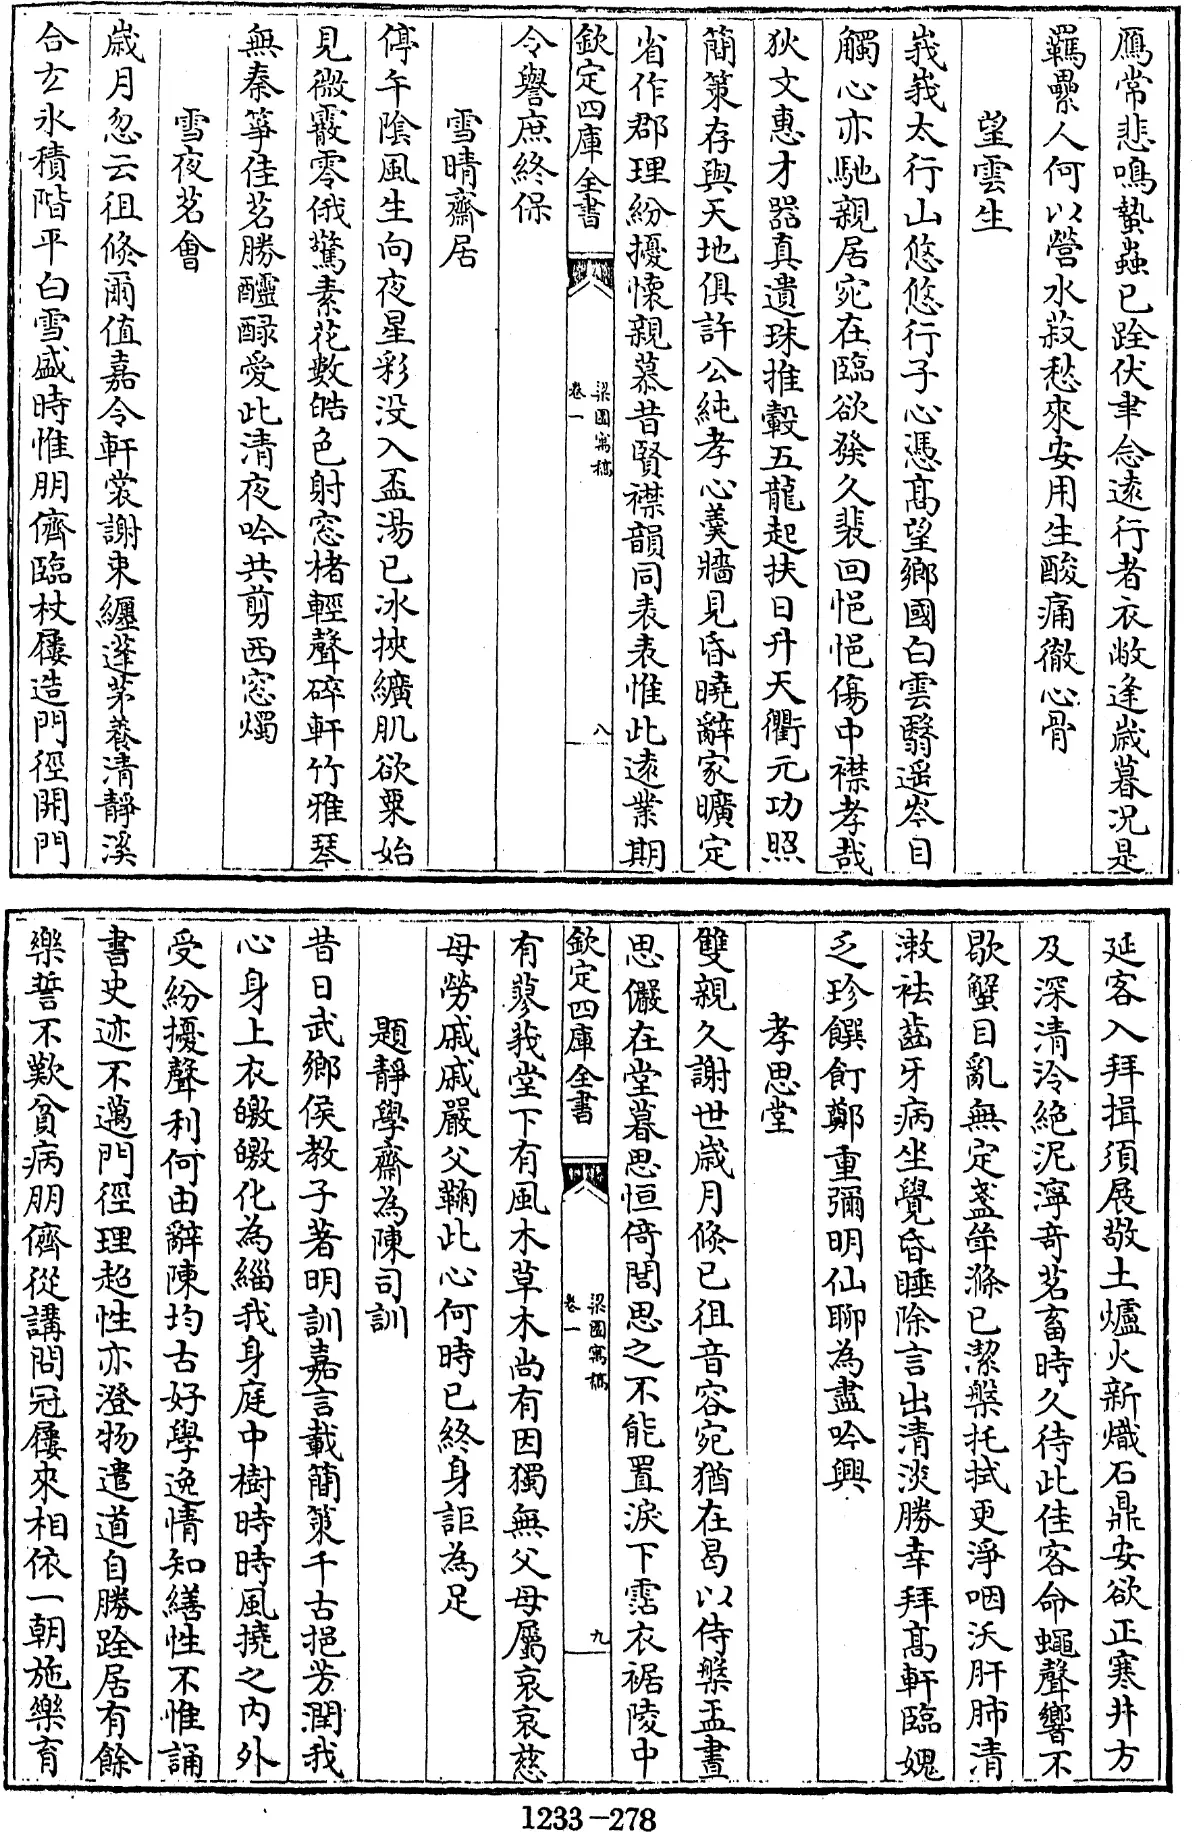 鴈常悲鳴蟄蟲已跧伏聿念逺行者衣敝逢嵗暮況是
羈纍人何以營水菽愁來安用生酸痛徹心骨
望雲生
峩峩太行山悠悠行子心憑髙望鄉國白雲翳遥岑目
觸心亦馳親居宛在臨欲發久裴回悒悒傷中襟孝哉
狄文惠才器真遺珠推轂五龍起扶日升天衢元功照
簡策存與天地俱許公純孝心羮牆見昏曉辭家曠定
省作郡理紛擾懐親慕昔賢襟韻同表表惟此逺業期
欽定四庫全書
梁園寓稿
卷一
八
令譽庶終保
雪晴齋居
停午陰風生向夜星彩没入盃湯已冰挾纊肌欲粟始
見微霰零俄驚素花數皓色射窓楮輕聲碎軒竹雅琴
無秦箏佳茗勝醽醁愛此清夜吟共剪西窓燭
雪夜茗㑹
嵗月忽云徂倐爾值嘉令軒裳謝束纒蓬茅養清靜溪
合玄氷積階平白雪盛時惟朋儕臨杖屨造門徑開門
延客入拜揖須展敬土爐火新熾石鼎安欲正寒井方
及深清泠絶泥濘奇茗畜時久待此佳客命蠅聲響不
歇蟹目亂無定盞斝滌已潔槃托拭更淨咽沃肝肺清
漱袪齒牙病坐覺昏睡除言出清淡勝幸拜髙軒臨媿
乏珍饌飣鄭重彌明仙聊為盡吟興
孝思堂
雙親久謝世嵗月倐已徂音容宛猶在曷以侍槃盂晝
思儼在堂暮思恒倚閭思之不能置淚下霑衣裾陵中
欽定四庫全書
梁園寓稿
卷一
九
有蓼莪堂下有風木草木尚有因獨無父母屬哀哀慈
母勞戚戚嚴父鞠此心何時已終身詎為足
題靜學齋為陳司訓
昔日武鄉侯教子著明訓嘉言載簡策千古挹芳潤我
心身上衣皦皦化為緇我身庭中樹時時風撓之内外
受紛擾聲利何由辭陳均古好學逸情知繕性不惟誦
書史迹不邁門徑理超性亦澄物遣道自勝跧居有餘
樂誓不歎貧病朋儕從講問冠屨來相依一朝施樂育
1233-278